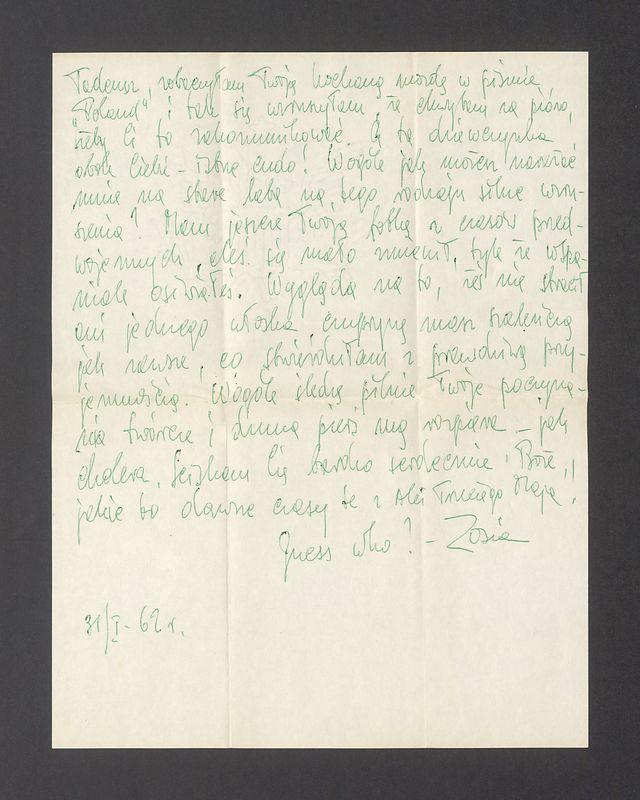 Tadeusz, zobaczyłam Twoją kochaną mordę w piśmie
"Poland" i tak się wzruszyłam, że chwytam za pióro,
żeby Ci to zakomunikować. A ta dziewczynka
obok Ciebie – istne cudo! Wogóle jak możesz narażać
mnie na stare lata na tego rodzaju silne wzru-
szenia? Mam jeszcze Twoją fotkę z czasów przed-
wojennych, aleś się mało zmienił, tyle że wspa-
niale osiwiałeś. Wygląda na to, żeś nie stracił
ani jednego włoska, czuprynę masz szaleńczą
jak zawsze, co stwierdziłam z prawdziwą przy-
jemnością. Wogóle śledzę pilnie Twoje poczyna-
nia twórcze i duma pierś mą rozpiera – jak
cholera. Ściskam Cię bardzo serdecznie. Boże,
jakie to dawne czasy te z Alei Trzeciego Maja!
Guess who? – Zosia
31/I – 62 r.